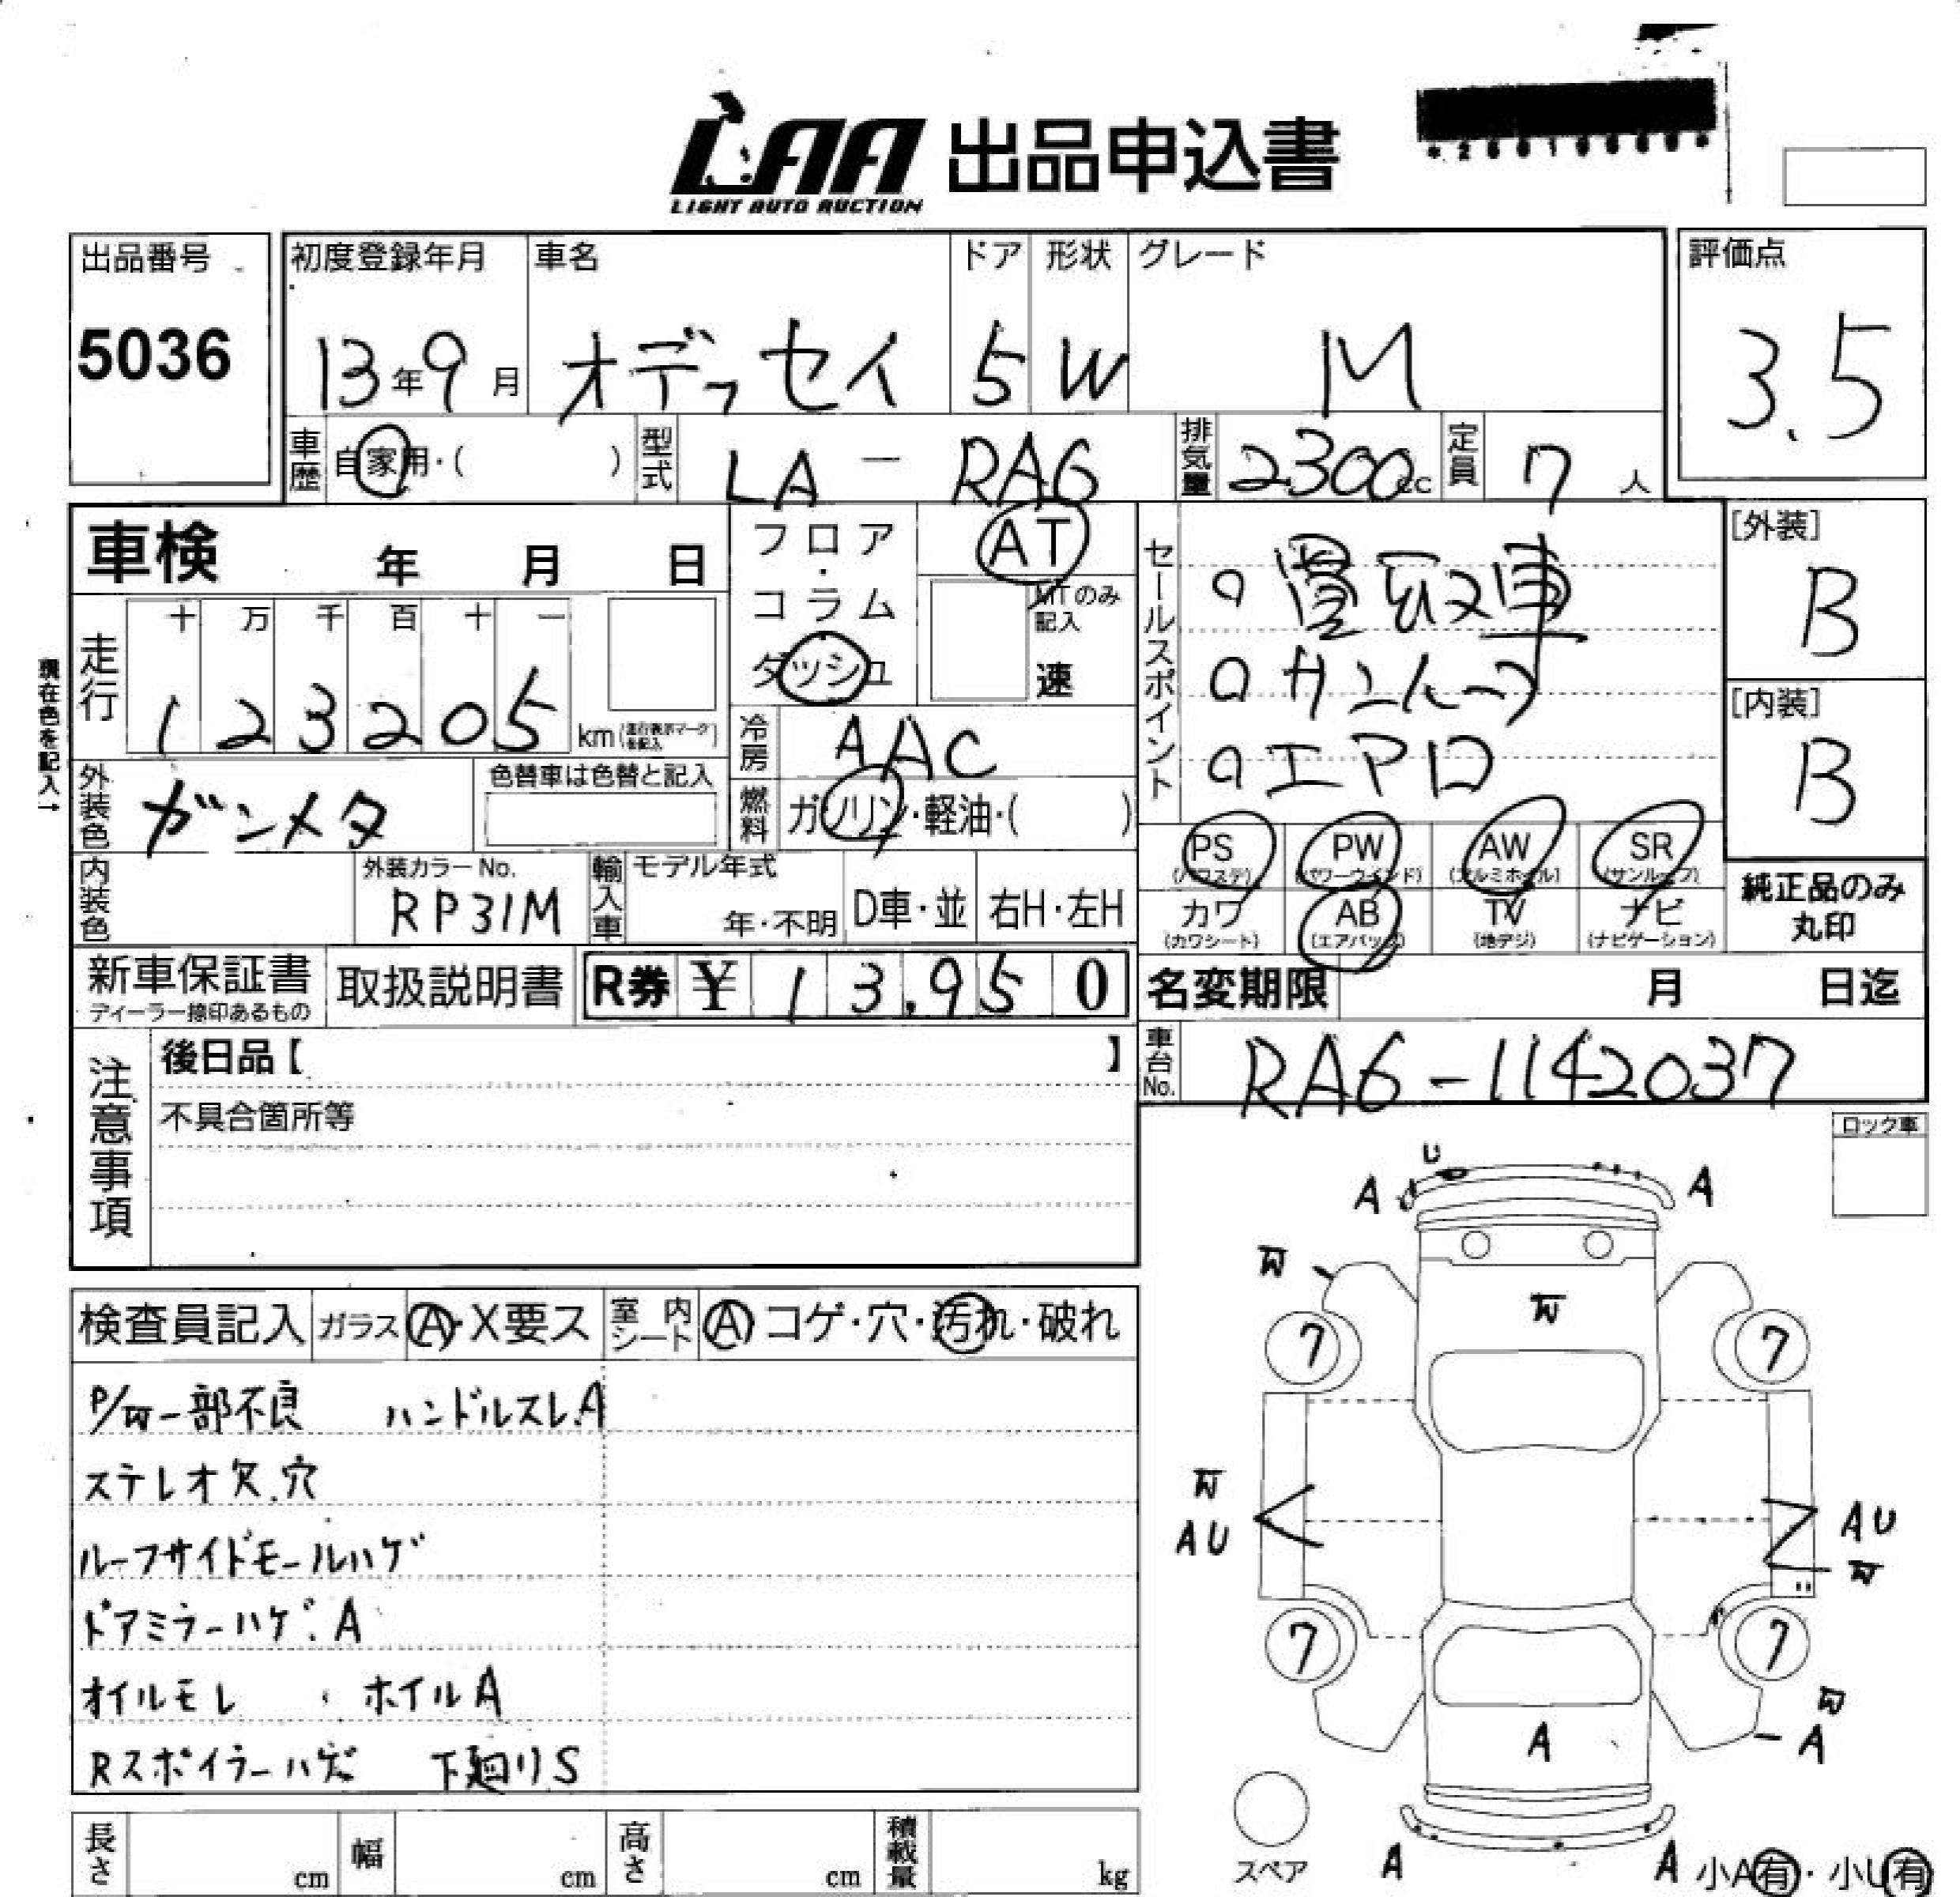 LAA 出品申込書
LIGHT AUTO AUCTION
出品番号
5036
初度登録年月 車名 ドア 形状 グレード
13年9月 オデッセイ 5 W M
評価点
3.5
車歴 自家用・( ) 型式 LA-RA6 排気量 2300cc 定員 7人
車検 年 月 日
フロア・コラム ダッシュ
AT
MTのみ記入
速
セールスポイント
○買取車
○サンルーフ
○エアロ
[外装]
B
[内装]
B
現在色を記入→
走行 十 万 千 百 十 一
1 2 3 2 0 5 km
冷房 AAC
外装色 ガンメタ 色替車は色替と記入
燃料 ガソリン・軽油・( )
PS (パワステ) PW (パワーウインド) AW (アルミホイル) SR (サンルーフ)
カワ (カワシート) AB (エアバッグ) TV (地デジ) ナビ (ナビゲーション)
純正品のみ丸印
内装色 外装カラーNo. RP31M
輸入車 モデル年式 年・不明 D車・並 右H・左H
新車保証書 ディーラー捺印あるもの 取扱説明書 R券 ¥ 13,950
名変期限 月 日迄
車台No. RA6-1142037
注意事項
後日品【 】
不具合箇所等
ロック車
検査員記入 ガラス A・X要ス 室内シート A コゲ・穴・汚れ・破れ
P/W一部不良 ハンドルスレ.A
ステレオ欠.穴
ルーフサイドモールハゲ
ドアミラーハゲ.A
オイルモレ ・ホイルA
Rスポイラーハゲ 下廻りS
U
A A
W
W
7 7
W
AU AU
W
7 7
W
A A
スペア A A 小A有・小U有
長さ cm 幅 cm 高さ cm 積載量 kg